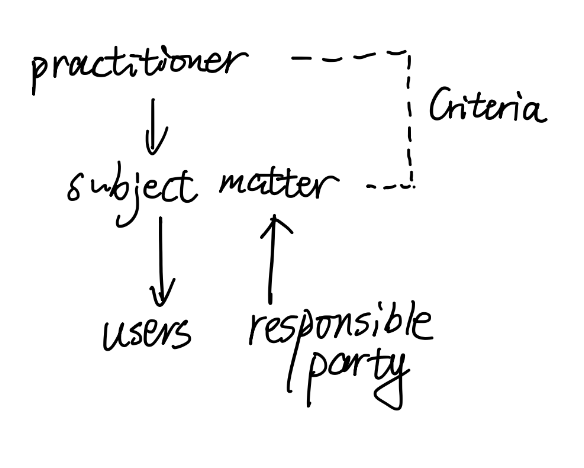 practitioner
Criteria
subject matter
users
responsible
party